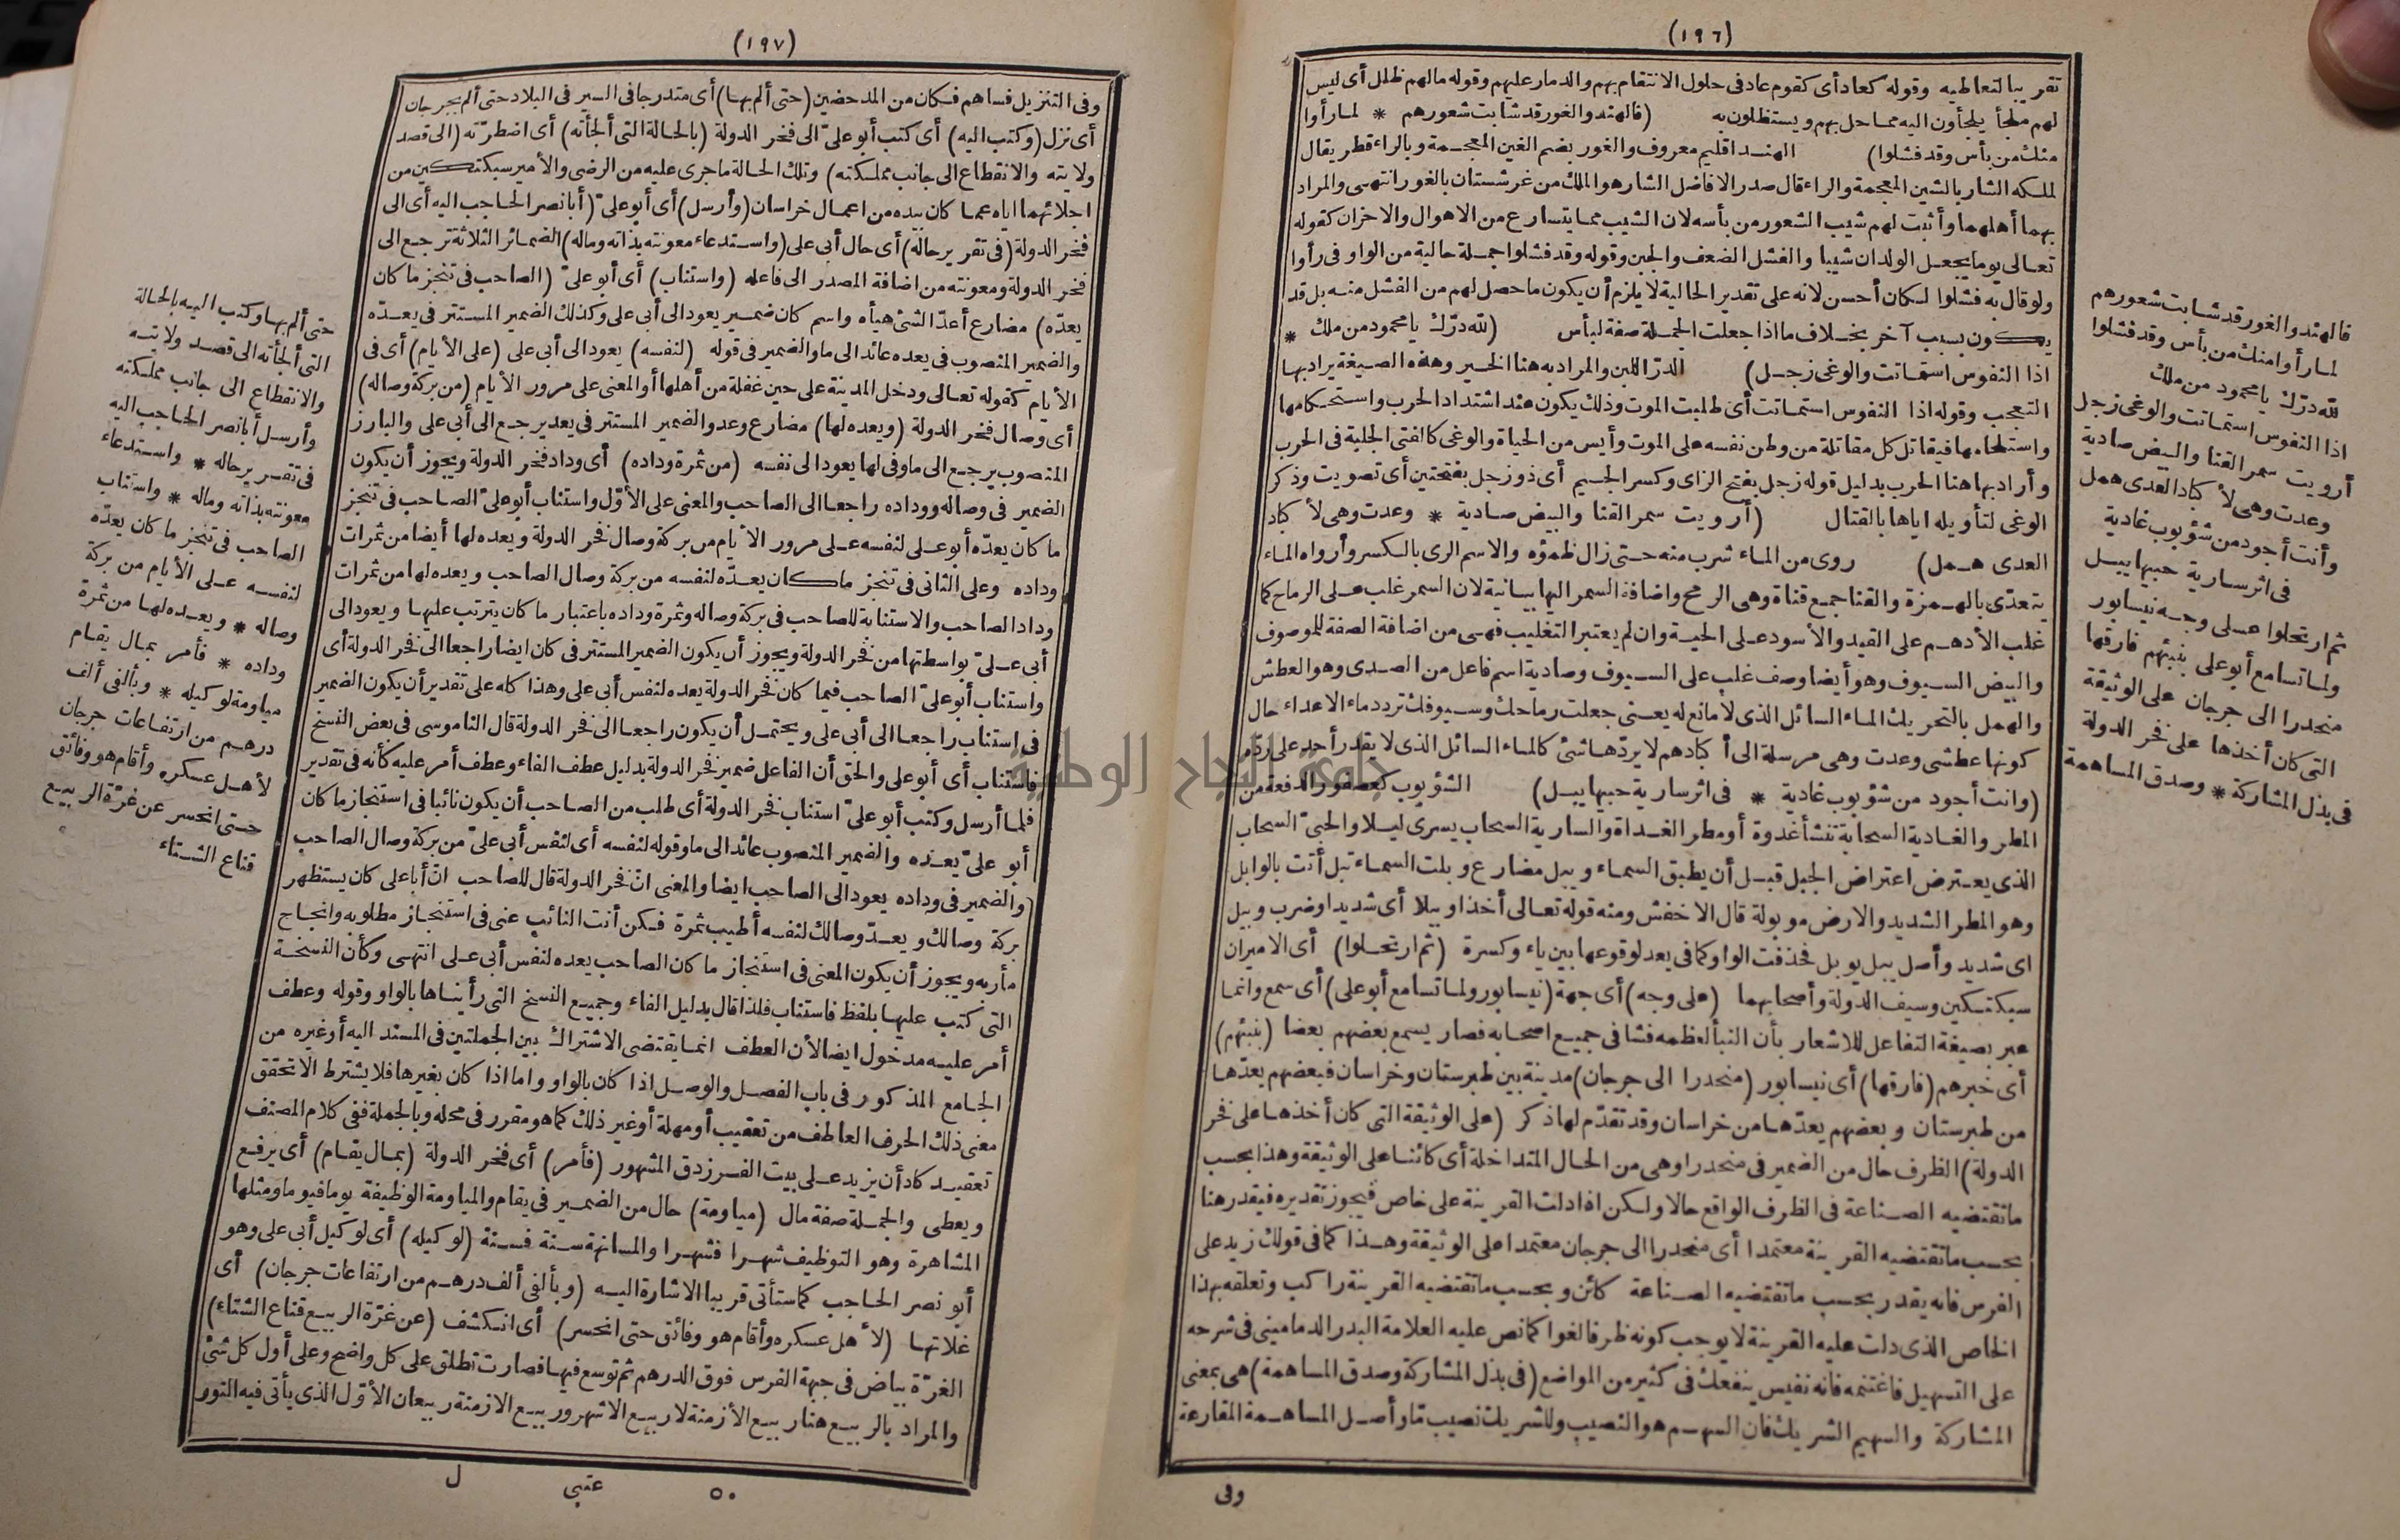 (١٩٦)
تقريبا لتعاطيه وقوله كعاد أى كقوم عاد فى حلول الانتقام بهم والدمار عليهم وقوله مالهم ظلل أى ليس
لهم ملجأ يلجأون اليه مما حل بهم ويستظلون به (فالهند والغور قد شابت شعورهم * لما رأوا
منك من بأس وقد فشلوا) الهند اقليم معروف والغور بضم الغين المعجمة وبالراء قطر يقال
لملكه الشار بالشين المعجمة والراء قال صدر الافاضل الشار هو الملك من غرشستان بالغور انتهى والمراد
بهما أهلهما وأثبت لهم شيب الشعور من بأسه لان الشيب مما يتسارع من الاهوال والاحزان كقوله
تعالى يوما يجعل الولدان شيبا والفشل الضعف والجبن وقوله وقد فشلوا جملة حالية من الواو فى رأوا
ولو قال به فشلوا لكان أحسن لانه على تقدير الحالية لا يلزم أن يكون ما حصل لهم من الفشل منه بل قد
يكون بسبب آخر بخلاف ما اذا جعلت الجملة صفة لبأس (لله درّك يا محمود من ملك *
اذا النفوس استماتت والوغى زجل) الدرّ اللبن والمراد به هنا الخير وهذه الصيغة يراد بها
التعجب وقوله اذا النفوس استماتت أى طلبت الموت وذلك يكون عند اشتداد الحرب واستحكامها
واستلحامها فيقاتل كل مقاتلة من وطن نفسه على الموت وأيس من الحياة والوغى كالفتى الجلبة فى الحرب
وأراد بها هنا الحرب بدليل قوله زجل بفتح الزاى وكسر الجيم أى ذو زجل بفتحتين أى تصويت وذكر
الوغى لتأويله اياها بالقتال (أرويت سمر القنا والبيض صادية * وعدت وهى لأكباد
العدى همل) روى من الماء شرب منه حتى زال ظمؤه والاسم الرى بالكسر وأرواه الماء
يتعدّى بالهمزة والقنا جمع قناة وهى الرمح واضافة السمر اليها بيانية لان السمر غلب على الرماح كما
غلب الأدهم على القيد والأسود على الحية وان لم يعتبر التغليب فهى من اضافة الصفة للموصوف
والبيض السيوف وهو أيضا وصف غلب على السيوف وصادية اسم فاعل من الصدى وهو العطش
والهمل بالتحريك الماء السائل الذى لا مانع له يعنى جعلت رماحك وسيوفك ترد دماء الاعداء حال
كونها عطشى وعدت وهى مرسلة الى أكبادهم لا يردّها شئ كالماء السائل الذى لا يقدر أحد على ردّه
(وانت أجود من شؤبوب غادية * فى اثر سارية حبيها يبل) الشؤبوب كعصفور الدفعة من
المطر والغادية السحابة تنشأ غدوة أو مطر الغداة والسارية السحاب يسرى ليلا والحبىّ السحاب
الذى يعترض اعتراض الجبل قبل أن يطبق السماء ويبل مضارع وبلت السماء تبل أتت بالوابل
وهو المطر الشديد والارض موبولة قال الاخفش ومنه قوله تعالى أخذا وبيلا أى شديدا وضرب وبيل
اى شديد وأصل يبل يوبل فحذفت الواو كما فى يعد لوقوعها بين ياء وكسرة (ثم ارتحلوا) أى الاميران
سبكتكين وسيف الدولة وأصحابهما (على وجه) أى جهة (نيسابور ولما تسامع أبو على) أى سمع وانما
عبر بصيغة التفاعل للاشعار بأن النبأ لعظمه فشا فى جميع اصحابه فصار يسمع بعضهم بعضا (بنبئهم)
أى خبرهم (فارقها) أى نيسابور (منحدرا الى جرجان) مدينة بين طبرستان وخراسان فبعضهم يعدّها
من طبرستان وبعضهم يعدّها من خراسان وقد تقدّم لها ذكر (على الوثيقة التى كان أخذها على فخر
الدولة) الظرف حال من الضمير فى منحدرا وهى من الحال المتداخلة أى كائنا على الوثيقة وهذا بحسب
ما تقتضيه الصناعة فى الظرف الواقع حالا ولكن اذا دلت القرينة على خاص فيجوز تقديره فيقدر هنا
بحسب ما تقتضيه القرينة معتمدا أى منحدرا الى جرجان معتمدا على الوثيقة وهذا كما فى قولك زيد على
الفرس فانه يقدر بحسب ما تقتضيه الصناعة كائن وبحسب ما تقتضيه القرينة راكب وتعلقه بهذا
الخاص الذى دلت عليه القرينة لا يوجب كونه ظرفا لغوا كما نص عليه العلامة البدر الدمامينى فى شرحه
على التسهيل فاغتنمه فانه نفيس ينفعك فى كثير من المواضع (فى بذل المشاركة وصدق المساهمة) هى بمعنى
المشاركة والسهيم الشريك فان السهم هو النصيب وللشريك نصيب ما وأصل المساهمة المقارعة
وفى
فالهند والغور قد شابت شعورهم
لما رأوا منك من بأس وقد فشلوا
لله درّك يا محمود من ملك
اذا النفوس استماتت والوغى زجل
أرويت سمر القنا والبيض صادية
وعدت وهى لأكباد العدى همل
وأنت أجود من شؤبوب غادية
فى اثر سارية حبيها يبل
ثم ارتحلوا على وجه نيسابور
ولما تسامع أبو على بنبئهم فارقها
منحدرا الى جرجان على الوثيقة
التى كان أخذها على فخر الدولة
فى بذل المشاركة * وصدق المساهمة
(١٩٧)
وفى التنزيل فساهم فكان من المدحضين (حتى ألم بها) أى متدرجا فى السير فى البلاد حتى ألم بجرجان
أى نزل (وكتب اليه) أى كتب أبو علىّ الى فخر الدولة (بالحالة التى ألجأته) أى اضطرّته (الى قصد
ولايته والانقطاع الى جانب مملكته) وتلك الحالة ما جرى عليه من الرضى والأمير سبكتكين من
اجلائهما اياه عما كان بيده من اعمال خراسان (وأرسل) أى أبو علىّ (أبا نصر الحاجب اليه أى الى
فخر الدولة (فى تقرير حاله) أى حال أبى على (واستدعاء معونته بذاته وماله) الضمائر الثلاثة ترجع الى
فخر الدولة ومعونته من اضافة المصدر الى فاعله (واستناب) أى أبو علىّ (الصاحب فى تنجز ما كان
يعدّه) مضارع أعدّ الشئ هيأه واسم كان ضمير يعود الى أبى على وكذلك الضمير المستتر فى يعدّه
والضمير المنصوب فى يعده عائد الى ما والضمير فى قوله (لنفسه) يعود الى أبى على (على الأيام) أى فى
الأيام كقوله تعالى ودخل المدينة على حين غفلة من أهلها أو المعنى على مرور الأيام (من بركة وصاله)
أى وصال فخر الدولة (ويعده لها) مضارع وعد والضمير المستتر فى يعد يرجع الى أبى على والبارز
المنصوب يرجع الى ما وفى لها يعود الى نفسه (من ثمرة وداده) أى وداد فخر الدولة ويجوز أن يكون
الضمير فى وصاله ووداده راجعا الى الصاحب والمعنى على الأوّل واستناب أبو علىّ الصاحب فى تنجز
ما كان يعدّه أبو على لنفسه على مرور الأيام من بركة وصال فخر الدولة ويعده لها أيضا من ثمرات
وداده وعلى الثانى فى تنجز ما كان يعدّه لنفسه من بركة وصال الصاحب ويعده لها من ثمرات
وداد الصاحب والاستنابة للصاحب فى بركة وصاله وثمرة وداده باعتبار ما كان يترتب عليها ويعود الى
أبى علىّ بواسطتها من فخر الدولة ويجوز أن يكون الضمير المستتر فى كان ايضا راجعا الى فخر الدولة أى
واستناب أبو علىّ الصاحب فيما كان فخر الدولة يعده لنفس أبى على وهذا كله على تقدير أن يكون الضمير
فى استناب راجعا الى أبى على ويحتمل أن يكون راجعا الى فخر الدولة قال الناموسى فى بعض النسخ
فاستناب أى أبو على والحق أن الفاعل ضمير فخر الدولة بدليل عطف الفاء وعطف أمر عليه كأنه فى تقدير
فلما أرسل وكتب أبو علىّ استناب فخر الدولة أى طلب من الصاحب أن يكون نائبا فى استنجاز ما كان
أبو علىّ يعدّه والضمير المنصوب عائد الى ما وقوله لنفسه أى لنفس أبى علىّ من بركة وصال الصاحب
والضمير فى وداده يعود الى الصاحب ايضا والمعنى انّ فخر الدولة قال للصاحب انّ أبا على كان يستظهر
بركة وصالك ويعدّ وصالك لنفسه أطيب ثمرة فكن أنت النائب عنى فى استنجاز مطلوبه وانجاح
مأربه ويجوز أن يكون المعنى فى استنجاز ما كان الصاحب يعده لنفس أبى على انتهى وكأن النسخة
التى كتب عليها بلفظ فاستناب فلذا قال بدليل الفاء وجميع النسخ التى رأيناها بالواو وقوله وعطف
أمر عليه مدخول ايضا لأن العطف انما يقتضى الاشتراك بين الجملتين فى المسند اليه أو غيره من
الجامع المذكور فى باب الفصل والوصل اذا كان بالواو واما اذا كان بغيرها فلا يشترط الا تحقق
معنى ذلك الحرف العاطف من تعقيب أو مهلة أو غير ذلك كما هو مقرر فى محله وبالجملة ففى كلام المصنف
تعقيد كاد أن يزيد على بيت الفرزدق المشهور (فأمر) أى فخر الدولة (بمال يقام) أى يرفع
ويعطى والجملة صفة مال (مياومة) حال من الضمير فى يقام والمياومة الوظيفة يوما فيوما ومثلها
المشاهرة وهو التوظيف شهرا فشهرا والمسانهة سنة فسنة (لوكيله) أى لوكيل أبى على وهو
أبو نصر الحاجب كما ستأتى قريبا الاشارة اليه (وبألفى ألف درهم من ارتفاعات جرجان) أى
غلاتها (لأهل عسكره وأقام هو وفائق حتى انحسر) أى انكشف (عن غرّة الربيع قناع الشتاء)
الغرّة بياض فى جبهة الفرس فوق الدرهم ثم توسع فيها فصارت تطلق على كل واضح وعلى أول كل شئ
والمراد بالربيع هنا ربيع الأزمنة لا ربيع الاشهر وربيع الازمنة ربيعان الأوّل الذى يأتى فيه النور
٥٠ عتبى ل
حتى ألم بها وكتب اليه بالحالة
التى ألجأته الى قصد ولايته
والانقطاع الى جانب مملكته
وأرسل أبا نصر الحاجب اليه
فى تقرير حاله * واستدعاء
معونته بذاته وماله * واستناب
الصاحب فى تنجز ما كان يعدّه
لنفسه على الأيام من بركة
وصاله * ويعده لها من ثمرة
وداده * فأمر بمال يقام
مياومة لوكيله * وبألفى ألف
درهم من ارتفاعات جرجان
لأهل عسكره وأقام هو وفائق
حتى انحسر عن غرّة الربيع
قناع الشتاء
جامعة النجاح الوطنية